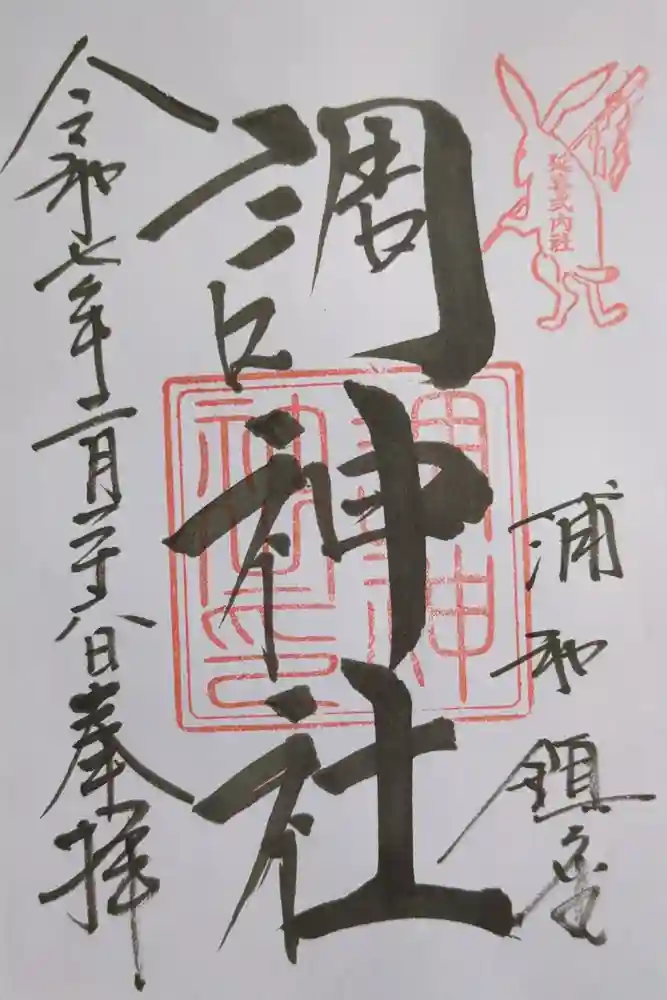 延喜式内社
浦和鎮座
調神社
調神
社之印
令和七年二月二十八日奉拝